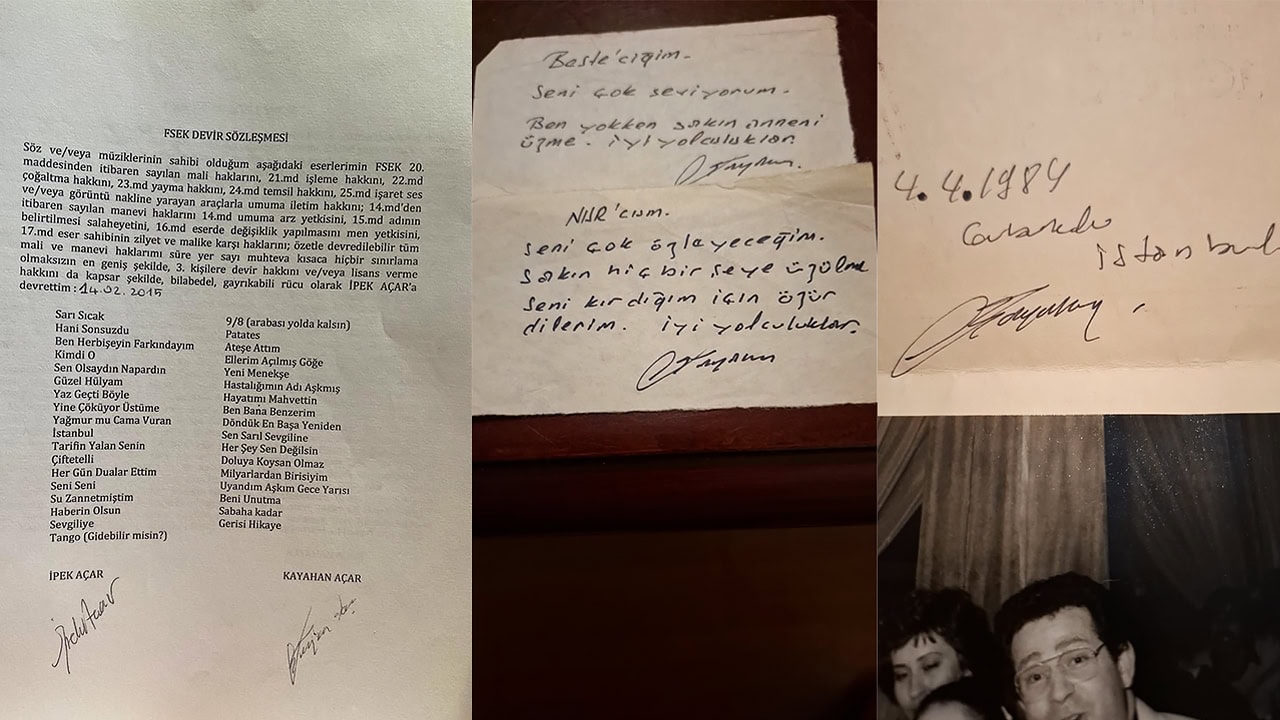 FSEK DEVİR SÖZLEŞMESİ
Söz ve/veya müziklerinin sahibi olduğum aşağıdaki eserlerimin FSEK 20.
maddesinden itibaren sayılan mali haklarını, 21.md işleme hakkını, 22.md
çoğaltma hakkını, 23.md yayma hakkını, 24.md temsil hakkını, 25.md işaret ses
ve/veya görüntü nakline yarayan araçlarla umuma iletim hakkını; 14.md'den
itibaren sayılan manevi haklarını 14.md umuma arz yetkisini, 15.md adının
belirtilmesi salaheyetini, 16.md eserde değişiklik yapılmasını men yetkisini,
17.md eser sahibinin zilyet ve malike karşı haklarını; özetle devredilebilir tüm
mali ve manevi haklarımı süre yer sayı muhteva kısaca hiçbir sınırlama
olmaksızın en geniş şekilde, 3. kişilere devir hakkını ve/veya lisans verme
hakkını da kapsar şekilde, bilabedel, gayrıkabili rücu olarak İPEK AÇAR'a
devrettim : 14.02.2015
Sarı Sıcak
Hani Sonsuzdu
Ben Herbişeyin Farkındayım
Kimdi O
Sen Olsaydın Napardın
Güzel Hülyam
Yaz Geçti Böyle
Yine Çöküyor Üstüme
Yağmur mu Cama Vuran
İstanbul
Tarifin Yalan Senin
Çiftetelli
Her Gün Dualar Ettim
Seni Seni
Su Zannetmiştim
Haberin Olsun
Sevgiliye
Tango (Gidebilir misin?)
9/8 (arabası yolda kalsın)
Patates
Ateşe Attım
Ellerim Açılmış Göğe
Yeni Menekşe
Hastalığımın Adı Aşkmış
Hayatımı Mahvettin
Ben Bana Benzerim
Döndük En Başa Yeniden
Sen Sarıl Sevgiline
Her Şey Sen Değilsin
Doluya Koysan Olmaz
Milyarlardan Birisiyim
Uyandım Aşkım Gece Yarısı
Beni Unutma
Sabaha kadar
Gerisi Hikaye
İPEK AÇAR
KAYAHAN AÇAR
Beste'ciğim.
Seni çok seviyorum.
Ben yokken sakın anneni
üzme. iyi yolculuklar.
NUR'cum.
Seni çok özleyeceğim.
sakın hiç bir şeye üzülme
Seni kırdığım için özür
dilerim. iyi yolculuklar.
4.4.1984
istanbul